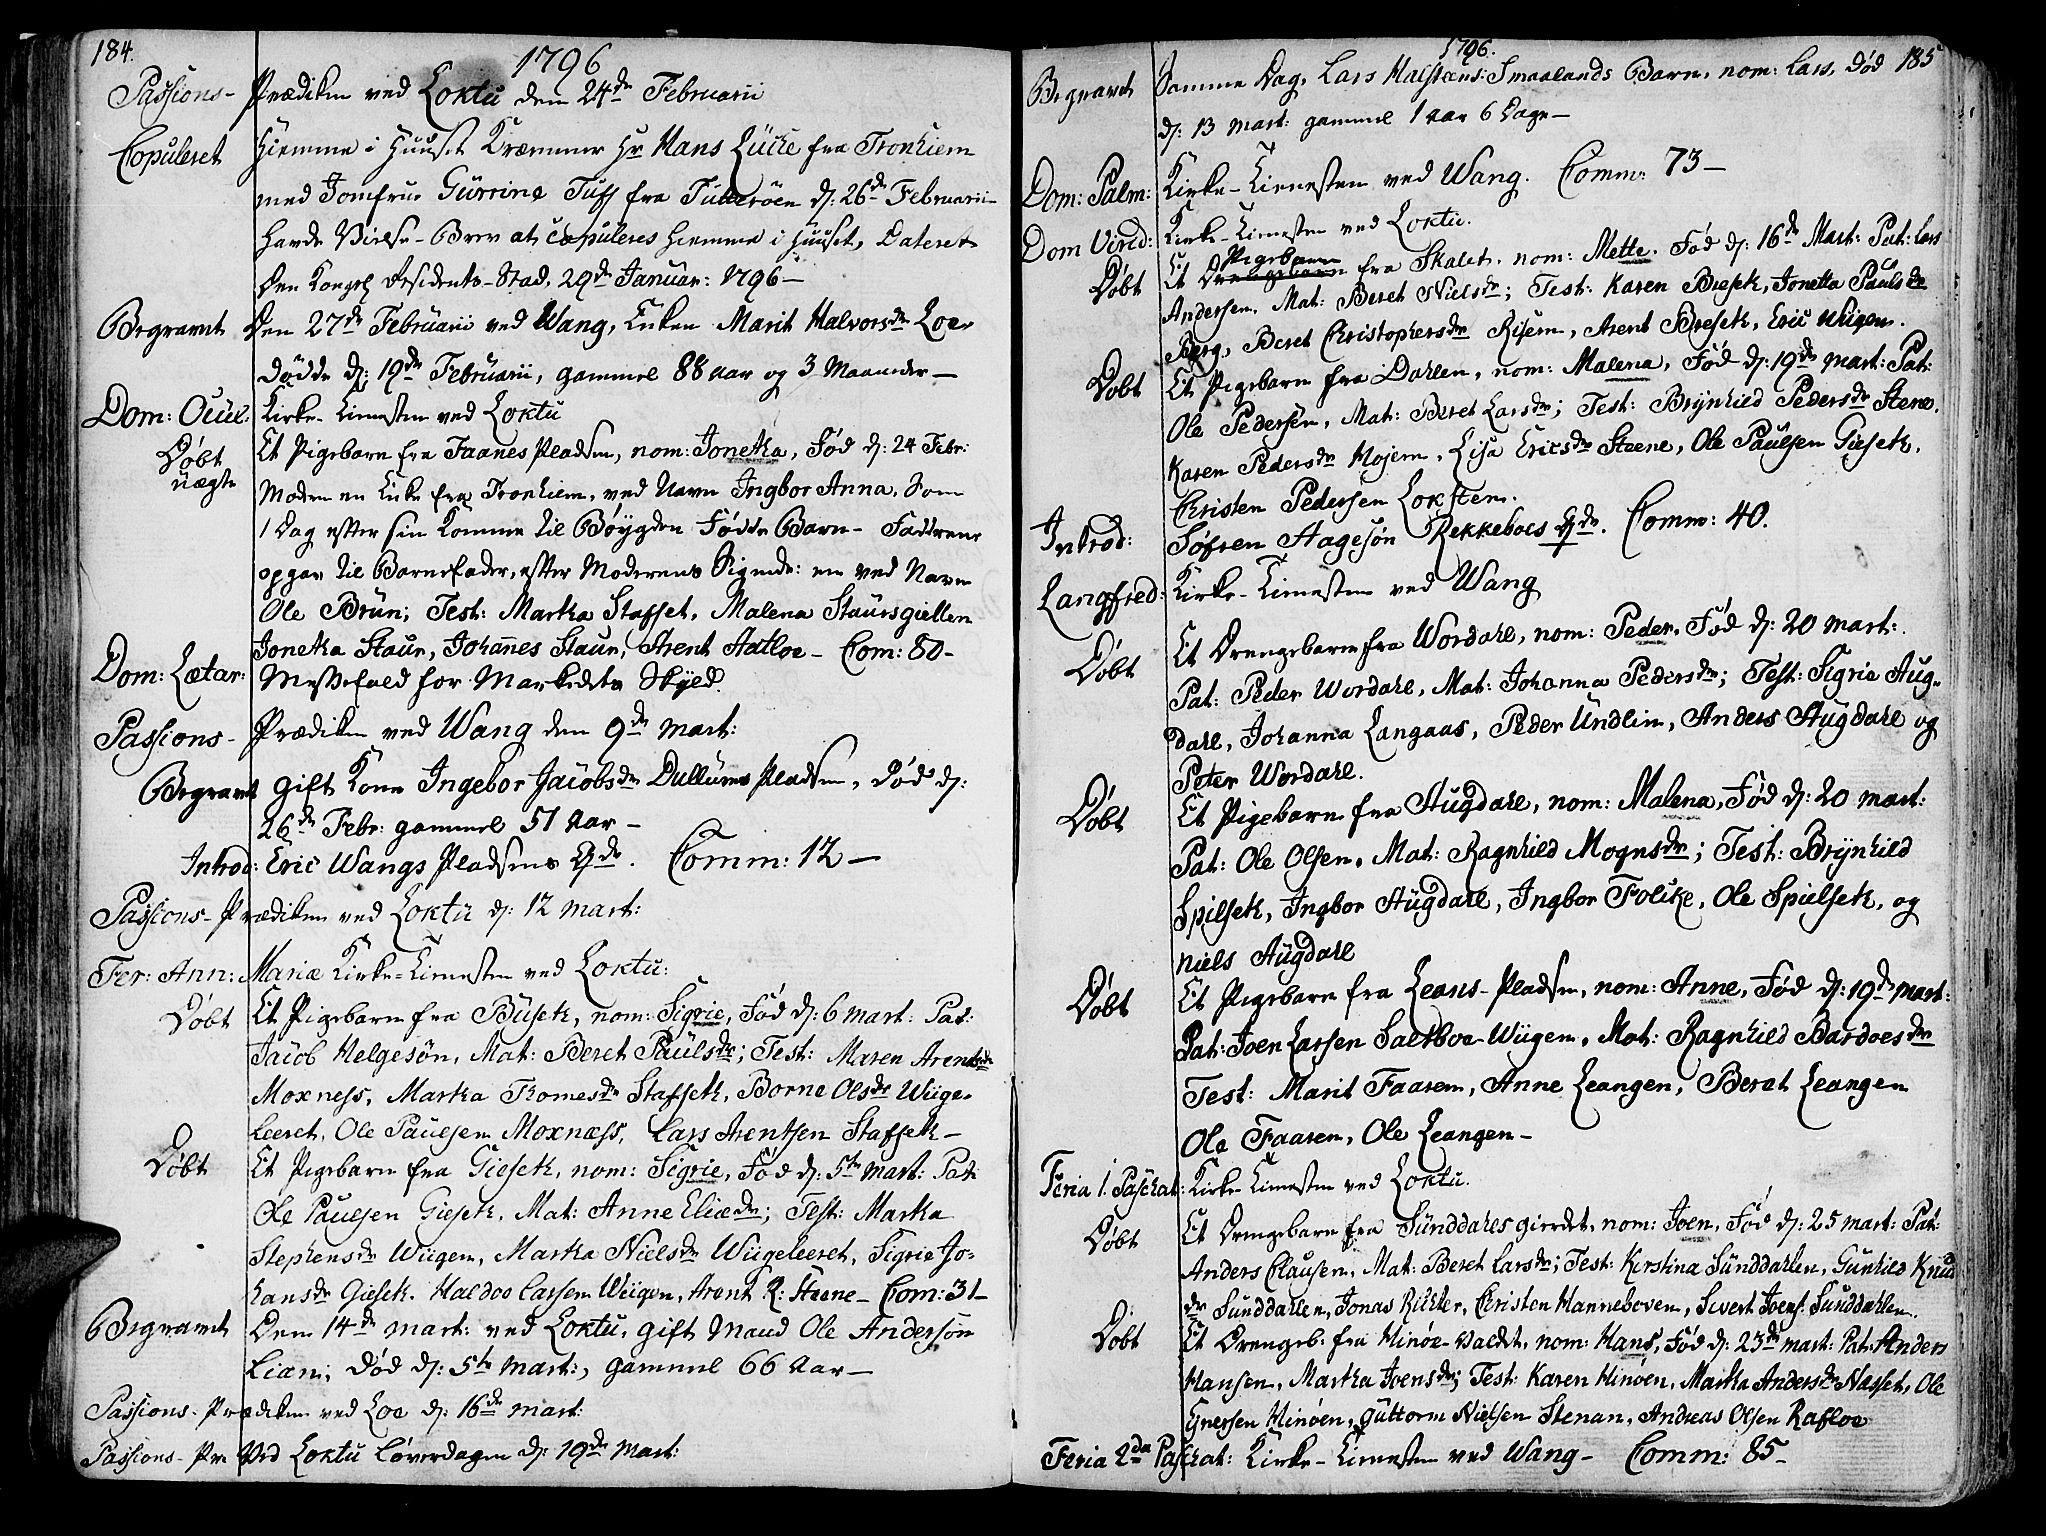 184.
1796
Passions- Prædiken ved Loktu den 24de Februarii
Copuleret Hiemme i Huuset Kræmmer Hr Hans Lücke fra Tronhiem
med Jomfrue Gürrine Tuff fra Tutterøen d: 26de Februarii
havde Vielse-Brev at copuleres hiemme i Huuset, Dateret
Den Kongel Residents-Stad, 29de Januar: 1796-
Begravet Den 27de Februarii ved Wang, Enken Marit Halvorsdr Loe
Døde d: 19de Februarii, gammel 88 aar og 3 Maaneder-
Dom: Ocul: Kirke-Tienesten ved Loktu
Døbt Et Pigebarn fra Faanes Pladsen, nom: Jonetha, Fød d: 24 Febr:
uægte Moderen en Enke fra Tronhiem, ved Navn Ingbor Anna, Som
1 Dag efter sin Komme til Bøygden Fødde Barn- Fadderne
opgav til Barnefader, efter Moderens Sigende: en ved Navn
Ole Brün; Test: Martha Stafset, Malena Staursgiellen
Jonetha Staur, Johannes Staur, Arent Aatloe- Com: 80-
Dom: Lætar: Messefald for Markedets Skyld.
Passions- Prædiken ved Wang den 9de Mart:
Begravet gift Kone Ingebor Jacobsdr Dullums Pladsen, Død d:
26de Febr: gammel 51 Aar-
Introd: Eric Wangs Pladsens Qde. Comm: 12-
Passions-Prædiken ved Loktu d: 12 Mart:
Fer: Ann: Mariæ Kirke-Tienesten ved Loktu:
Døbt Et Pigebarn fra Büseth, nom: Sigrie, Fød d: 6 Mart: Pat:
Jacob Helgesøn, Mat: Beret Paulsdr; Test: Maren Arentsdr
Moxness, Martha Thomesdr Stafseth, Borne Olsdr Wiige-
leeret, Ole Paulsen Moxness, Lars Arentsen Stafseth-
Døbt Et Pigebarn fra Gieseth, nom: Sigrie, Fød d: 5te Mart: Pat:
Ole Paulsen Gieseth, Mat: Anne Eliædr; Test: Martha
Stephensdr Wiigen, Martha Nielsdr Wiigeleeret, Sigrie Jo-
hansdr Gieseth, Haldoe Larsen Wiigen, Arent R: Steene- Com: 31-
Begravet Den 14de Mart: ved Loktu, gift Mand Ole Andersøn
Lian; Død d: 5te Mart:, gammel 66 Aar-
Passions-Prædiken ved Loe d: 16de Mart:
Passions-Pr: Ved Loktu Løverdagen d: 19de Mart:
1796. 185
Begravet Samme Dag, Lars Halstens: Smaalands Barn, nom: Lars, Død
d: 13 Mart: gammel 1 aar 6 Dage-
Dom: Palm: Kirke-Tienesten ved Wang. Comm: 73-
Dom Virid: Kirke-Tienesten ved Loktu.
Pigebarn
Døbt Et Drengebarn fra Skalet, nom: Mette, Fød d: 16de Mart: Pat: Lars
Andersen, Mat: Beret Nielsdr; Test: Karen Breseth, Jonetta Paulsdr
Berg, Beret Christophersdr Risem, Arent Breseth, Eric Wiigen.
Døbt Et Pigebarn fra Dahlen, nom: Malena, Fød d: 19de Mart: Pat:
Ole Pedersen, Mat: Beret Larsdr; Test: Brynhild Pedersdr Stene,
Karen Pedersdr Mojem, Lisa Ericsdr Steene, Ole Paulsen Gieseth,
Christen Pedersen Loksten.
Introd: Søfren Hagesøn Rekkeboes Qde. Comm: 40.
Langfred: Kirke-Tienesten ved Wang
Døbt Et Drengebarn fra Wordahl, nom: Peder, Fød d: 20 Mart:
Pat: Peder Wordahl, Mat: Johanna Pedersdr; Test: Sigrie Aug-
dahl, Johanna Langaas, Peder Undlin, Anders Augdahl og
Peter Wordahl.
Døbt Et Pigebarn fra Augdahl, nom: Malena, Fød d: 20 Mart:
Pat: Ole Olsen, Mat: Ragnhild Mognsdr; Test: Brynhild
Spilseth, Ingbor Augdahl, Ingbor Folike, Ole Spielseth, og
Niels Augdahl
Døbt Et Pigebarn fra Leans-Pladsen, nom: Anne, Fød d: 19de Mart:
Pat: Joen Larsen Saltboe-Wiigen, Mat: Ragnhild Bardoesdr
Test: Marit Faarem, Anne Leangen, Berat Leangen
Ole Faarem, Ole Leangen-
Feria 1. Paschat: Kirke Tienesten ved Loktu.
Døbt Et Drengebarn fra Sünddahls gierdet, nom: Joen, Fød d: 25 Mart: Pat:
Anders Clausen, Mat: Beret Larsdr; Test: Kerstina Sünddahlen, Gunhild Knud
dr Sunddahlen, Jonas Richter, Christen Hanneboven, Sivert Joens: Sunddahlen.
Døbt Et Drengeb: fra Hinøe-valdet, nom: Hans, Fød d: 23de Mart: Pat: Anders
Hansen, Martha Joensdr; Test: Karen Hinøen, Martha Andersdr Næsset, Ole
Gunersen Hinøen, Guttorm Nielsen Stenan, Andreas Olsen Rafloe
Feria 2da Paschat: Kirke-Tienesten ved Wang- Comm: 85-